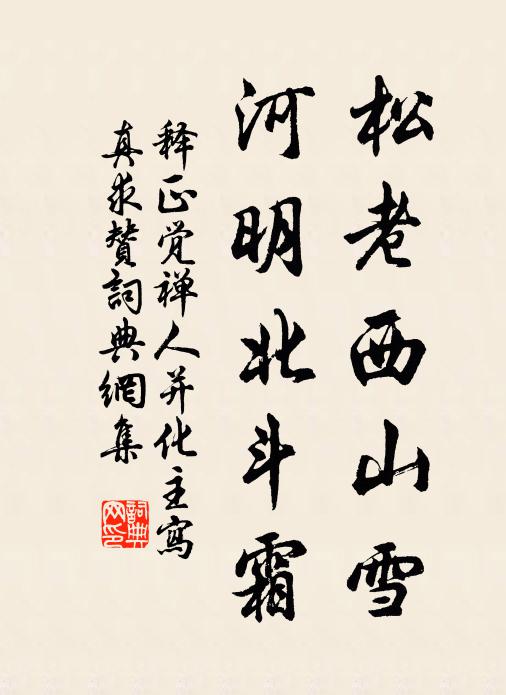 松老西山雪
河明北斗霜
释正觉禅人并化主寫
真求赞詞典網集
詞典网印